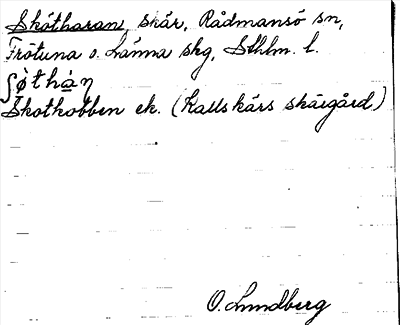 Skötharan, skär, Rådmansö sn,
Frötuna o. Länna skg, Sthlm. l.
ʃø̀thàη
Skotkobben ek. (Kallskärs skärgård)
O. Lundberg